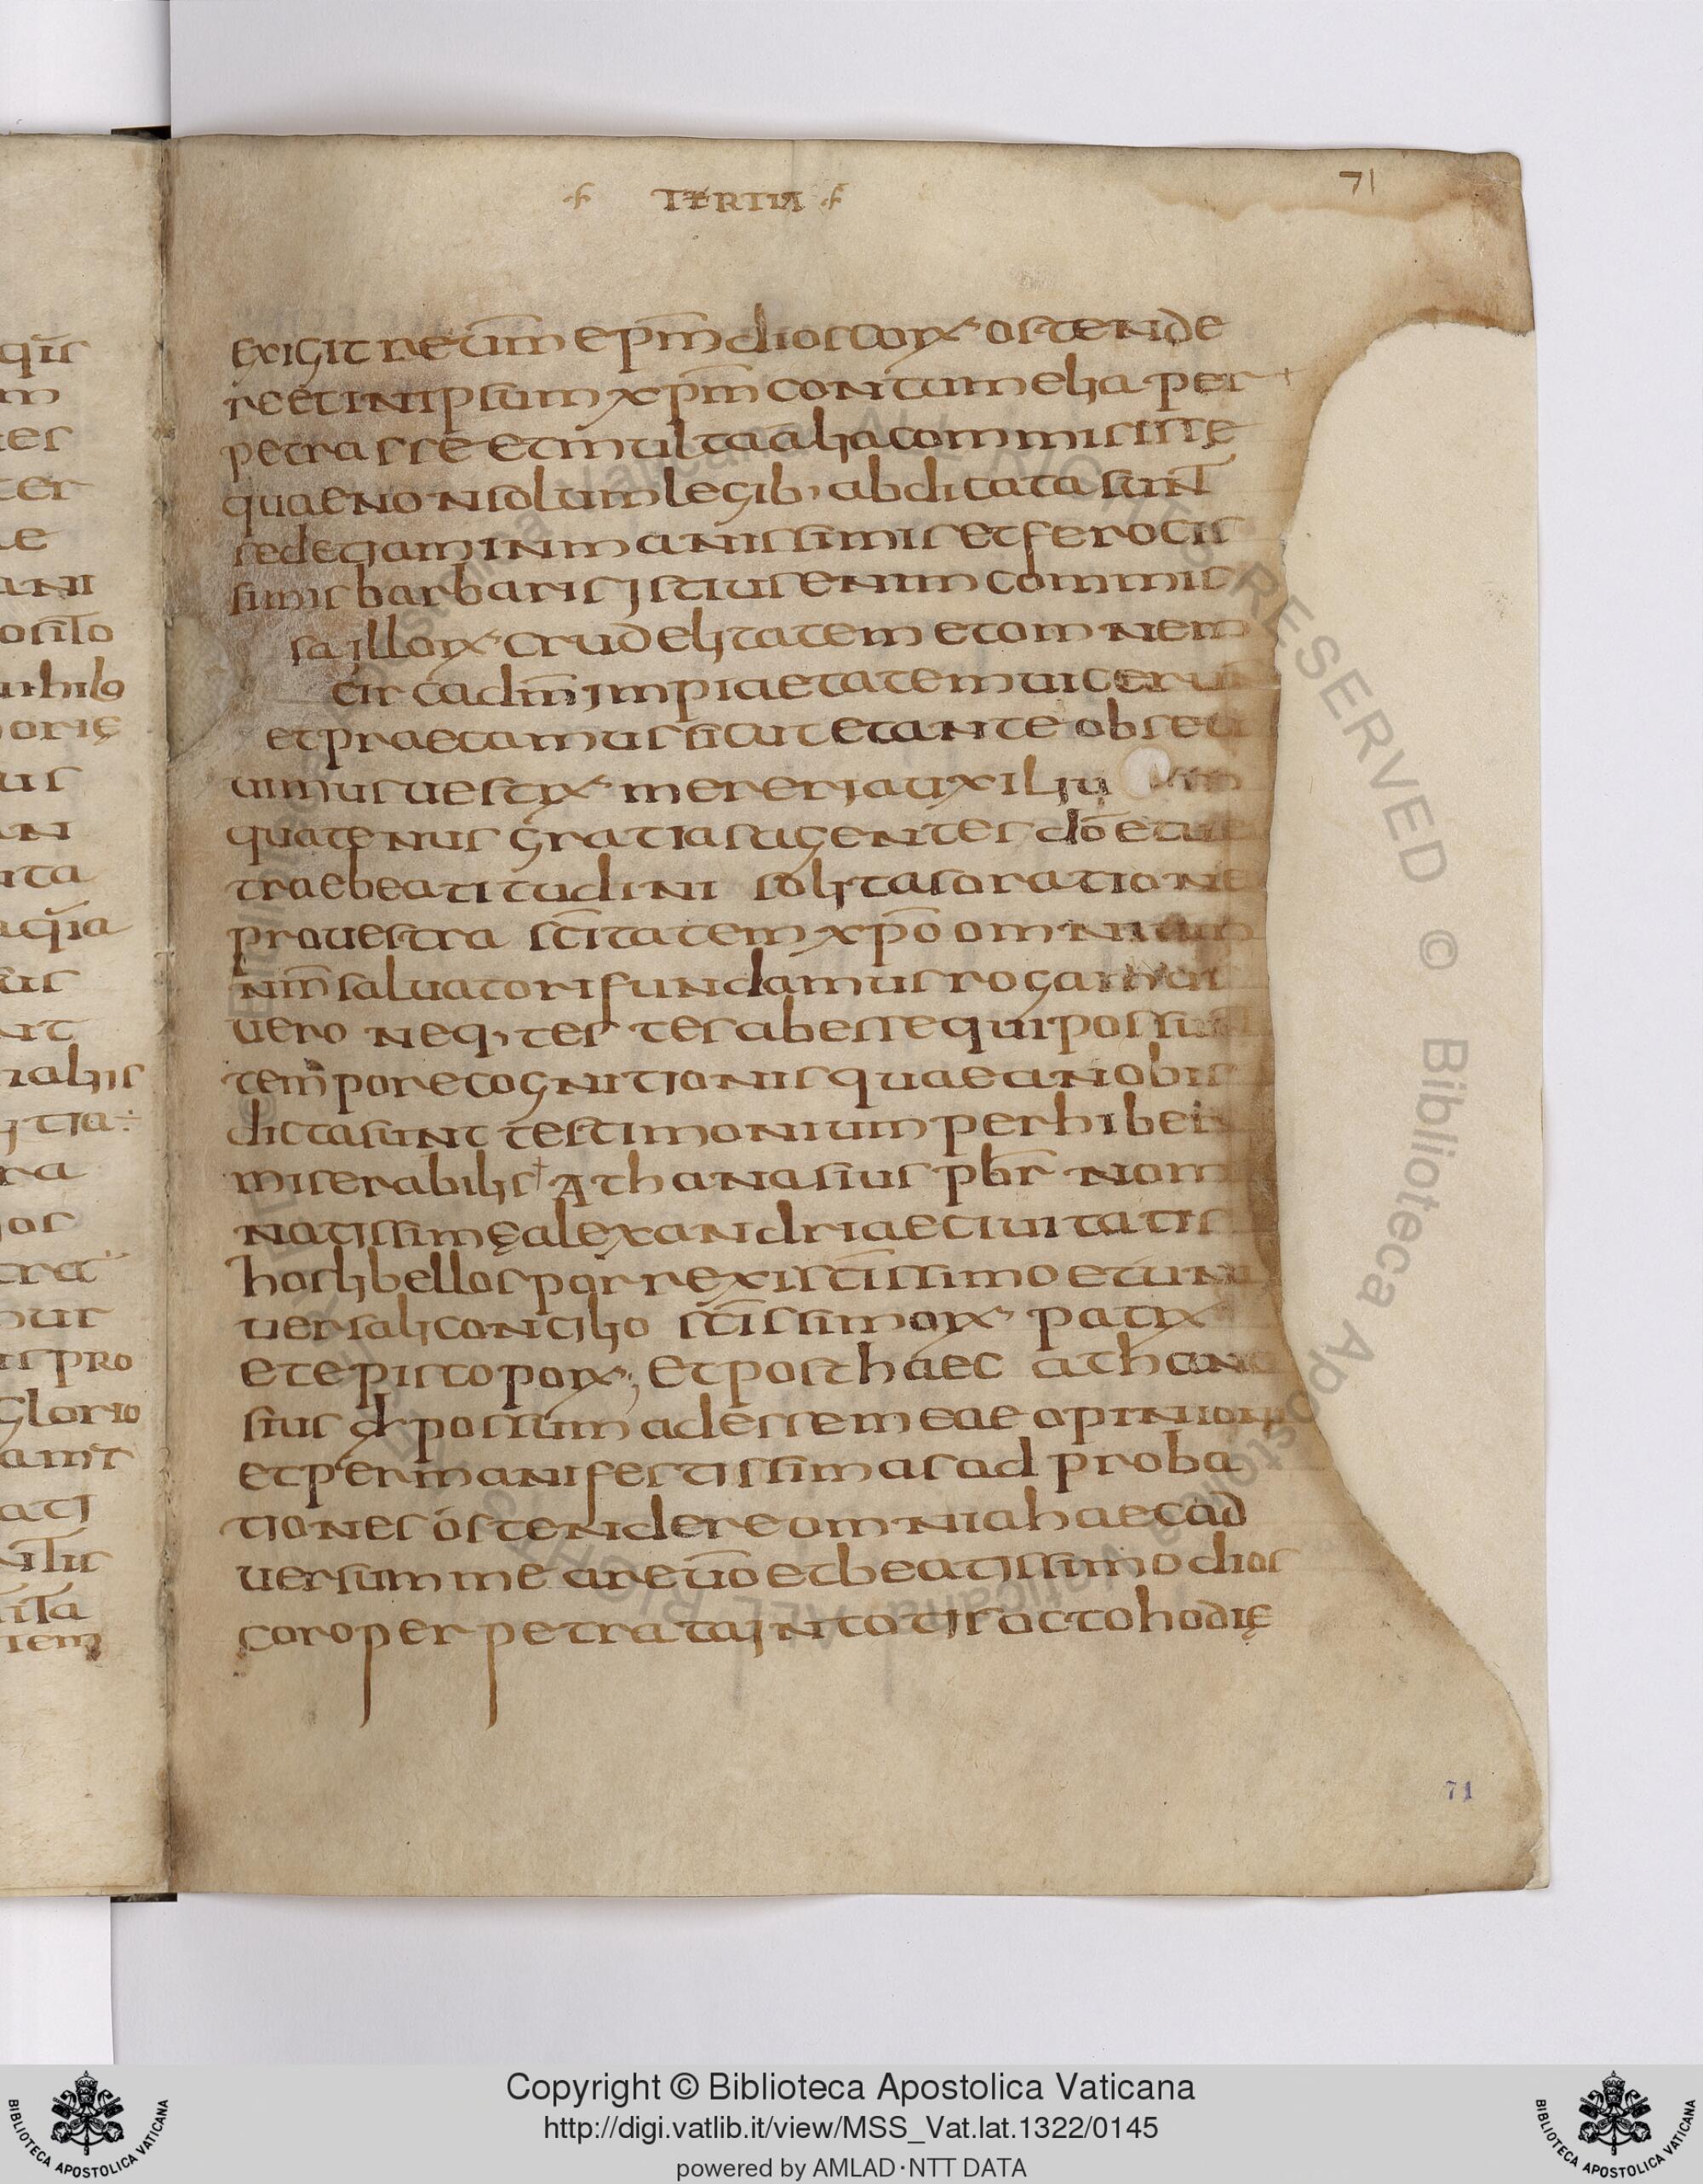 TERTIA
71
exigit reum̄ ep̄m dioscorꝝ ostende
re et in ipsum xp̄m contumelia per
petrasse et multa alia commisisse
quae non solum legib; abdicata sunt̄
sed etiam inmanissimis et ferocis
simis barbaris istius enim commis
sa illorꝝ crudelitatem et omnem
circa dm̄ impiaetatem uicerun
et praecamur sicut et ante obsecr
uimus uestrꝝ mereri auxiliu
quatenus gratias agentes dō et ues
trae beatitudini solitas oratione
pro uestra sc̄itatem xp̄o omnium
nm̄ saluatori fundamus rogamus
uero neq; testes abesse qui possunt
tempore cognitionis quae a nobis
dicta sunt testimonium perhibere
miserabilis Athanasius pb̄r nomi
natissimę alexandriae ciuitatis
hos libellos porrexi sc̄issimo et uni
uersali concilio sc̄issimorꝝ patrꝝ
et episcoporꝝ; Et post haec athana
sius dꝑ possum adesse meae opinioni
et per manifestissimas adproba
tiones ostendere omnia haec ad
uersum me a reuō et beatissimo dios
coro perpetrata in totis octo hodię
qīs
m
ter
ter
ae
ani
us
an
ita
aqīa
nt
ra
ior
mus
is pro
glorio
ati
71
Copyright © Biblioteca Apostolica Vaticana
http://digi.vatlib.it/view/MSS_Vat.lat.1322/0145
powered by AMLAD·NTT DATA
BIBLIOTECA APOSTOLICA VATICANA
BIBLIOTECA APOSTOLICA VATICANA